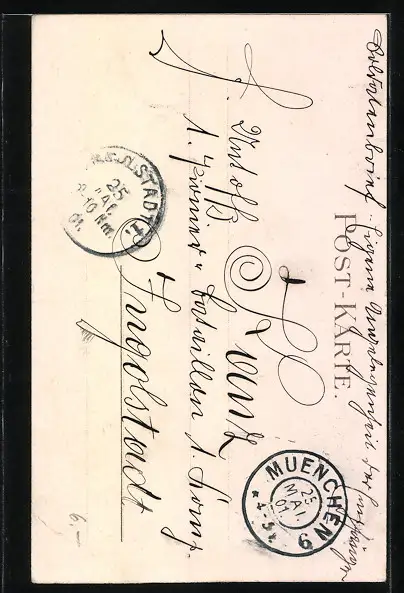 Soldatenbrief. Eigene Angelegenheit des Empfängers
POST-KARTE.
Kunz
Rudolf
1. Pionier Bataillon 1. Komp.
Ingolstadt
INGOLSTADT I
25
MAI
01.
MUENCHEN 6
25
MAI
01
4-5 N.
6.–